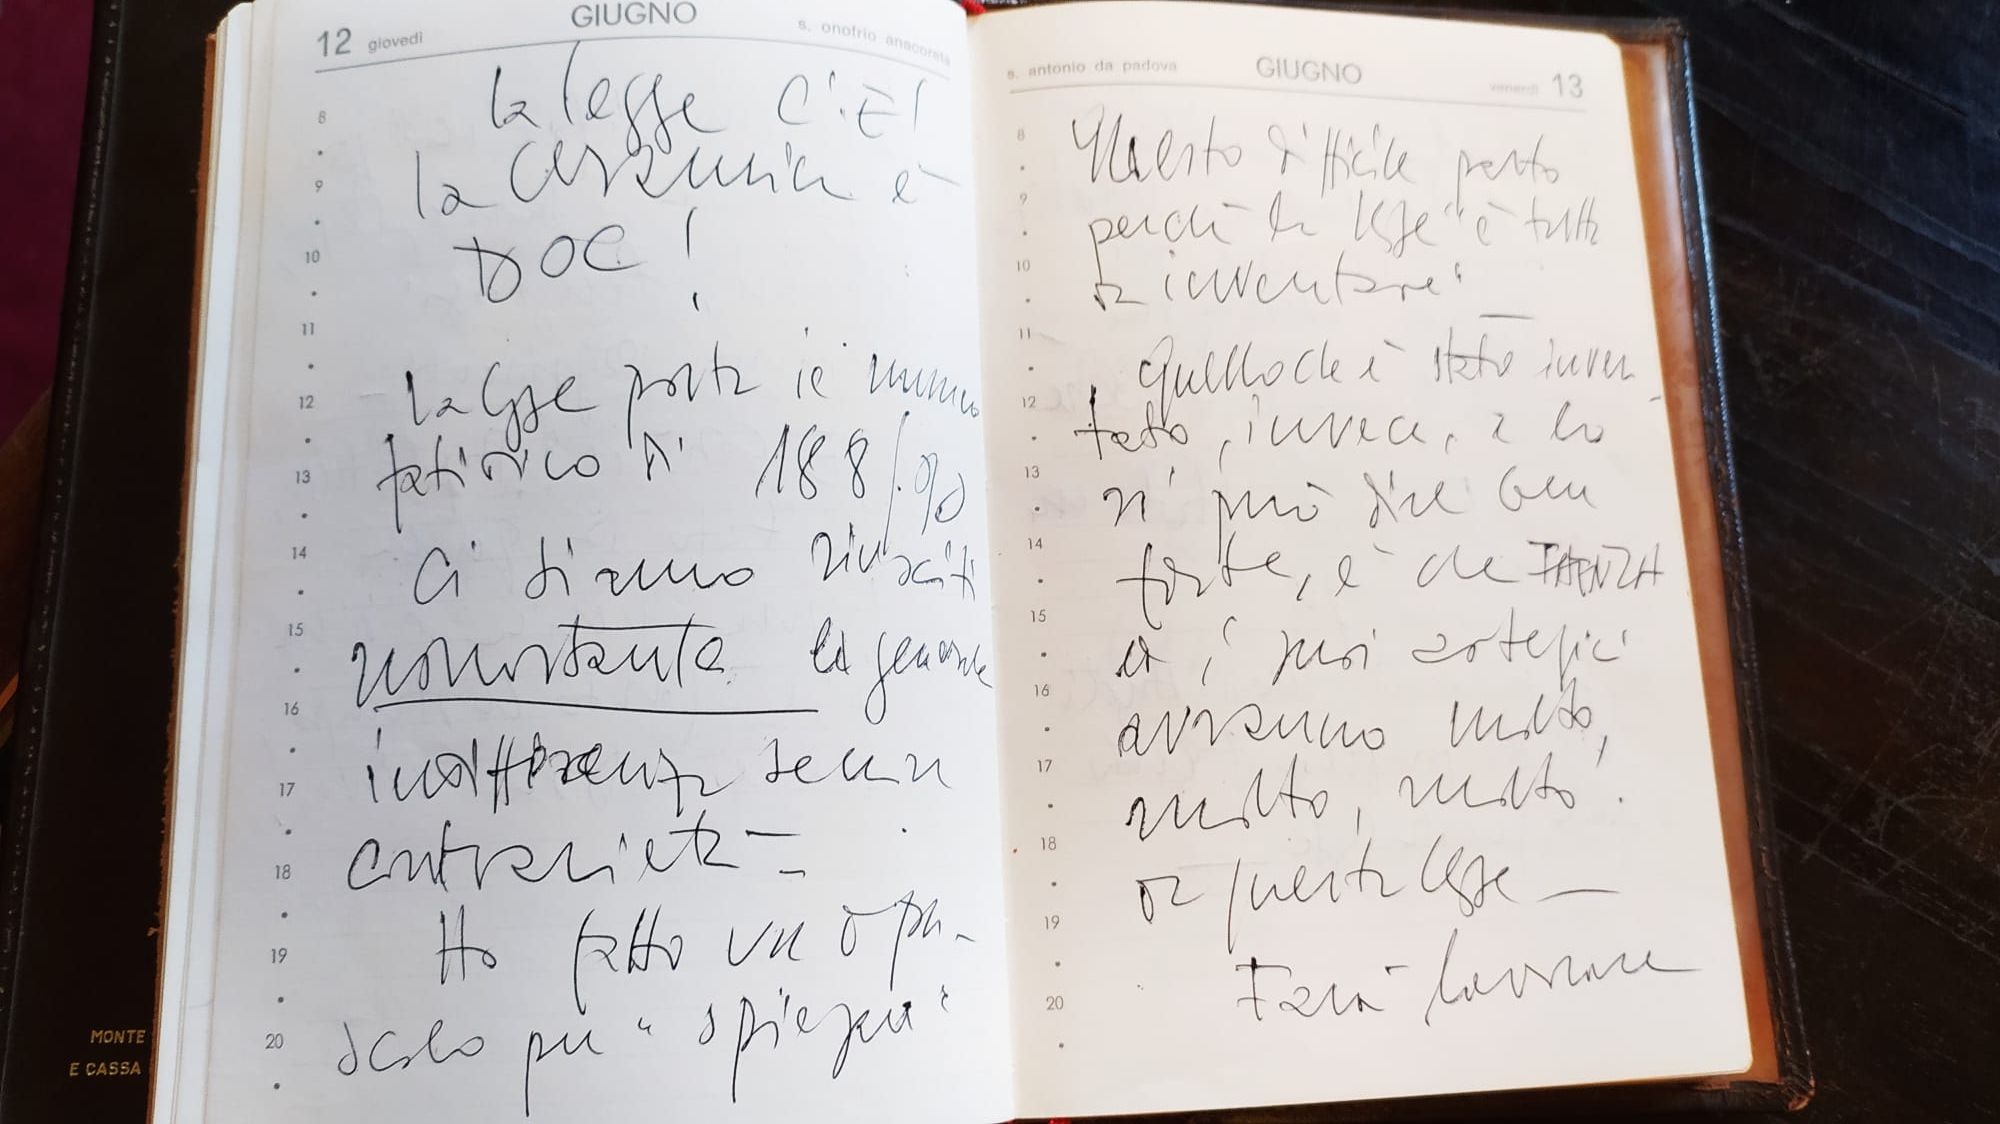 12 giovedì GIUGNO s. onofrio anacoreta
8
9
10
11
12
13
14
15
16
17
18
19
20
la legge C'È!
la ceramica è
DOC!
la legge porta il numero
fatidico di 188/.90
Ci siamo riusciti
nonostante la generale
indifferenza se non
contrarietà
Ho fatto un opu-
scolo per "spiegare"
MONTE
E CASSA
s. antonio da padova GIUGNO venerdì 13
8
9
10
11
12
13
14
15
16
17
18
19
20
Questo difficile parto
perché la legge "è tutta
da inventare"
Quello che è stato inven-
tato, invece, e lo
si può dire ben
forte, è che FAENZA
ed i suoi artefici
avranno molto,
molto, molto
da questa legge
Farà lavorare